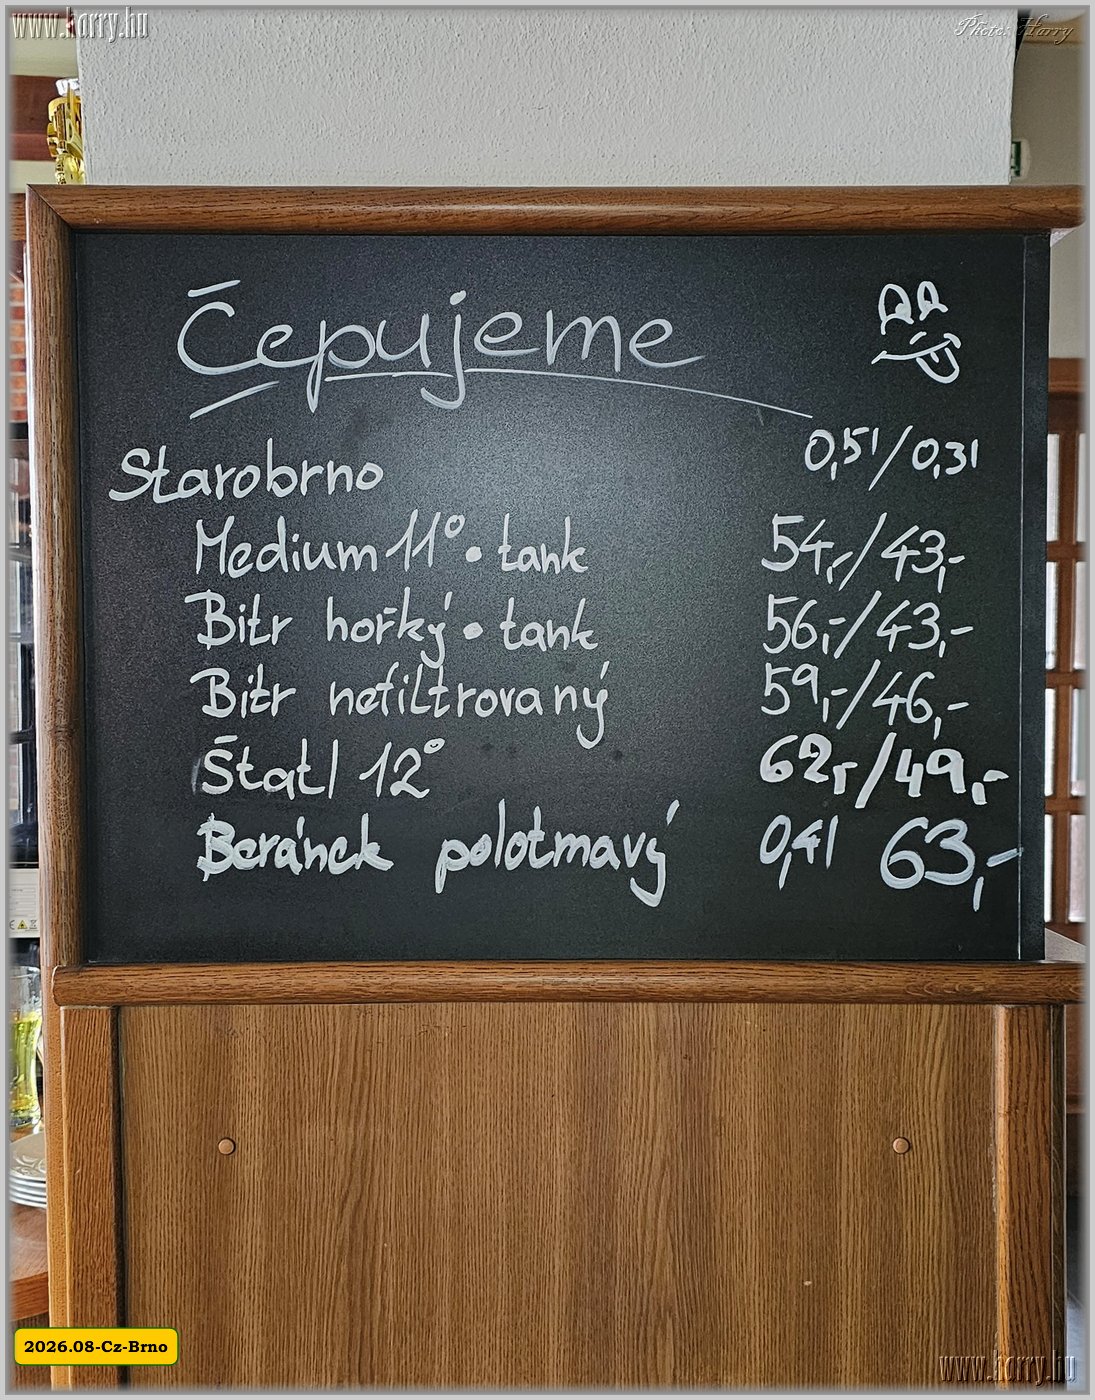 www.harry.hu
Photos Harry
Čepujeme
0,5l/0,3l
Starobrno
Medium 11° • tank 54,-/43,-
Bitr hořký • tank 56,-/43,-
Bitr nefiltrovaný 59,-/46,-
Štatl 12° 62,-/49,-
Beránek polotmavý 0,4l 63,-
2026.08-Cz-Brno
www.harry.hu